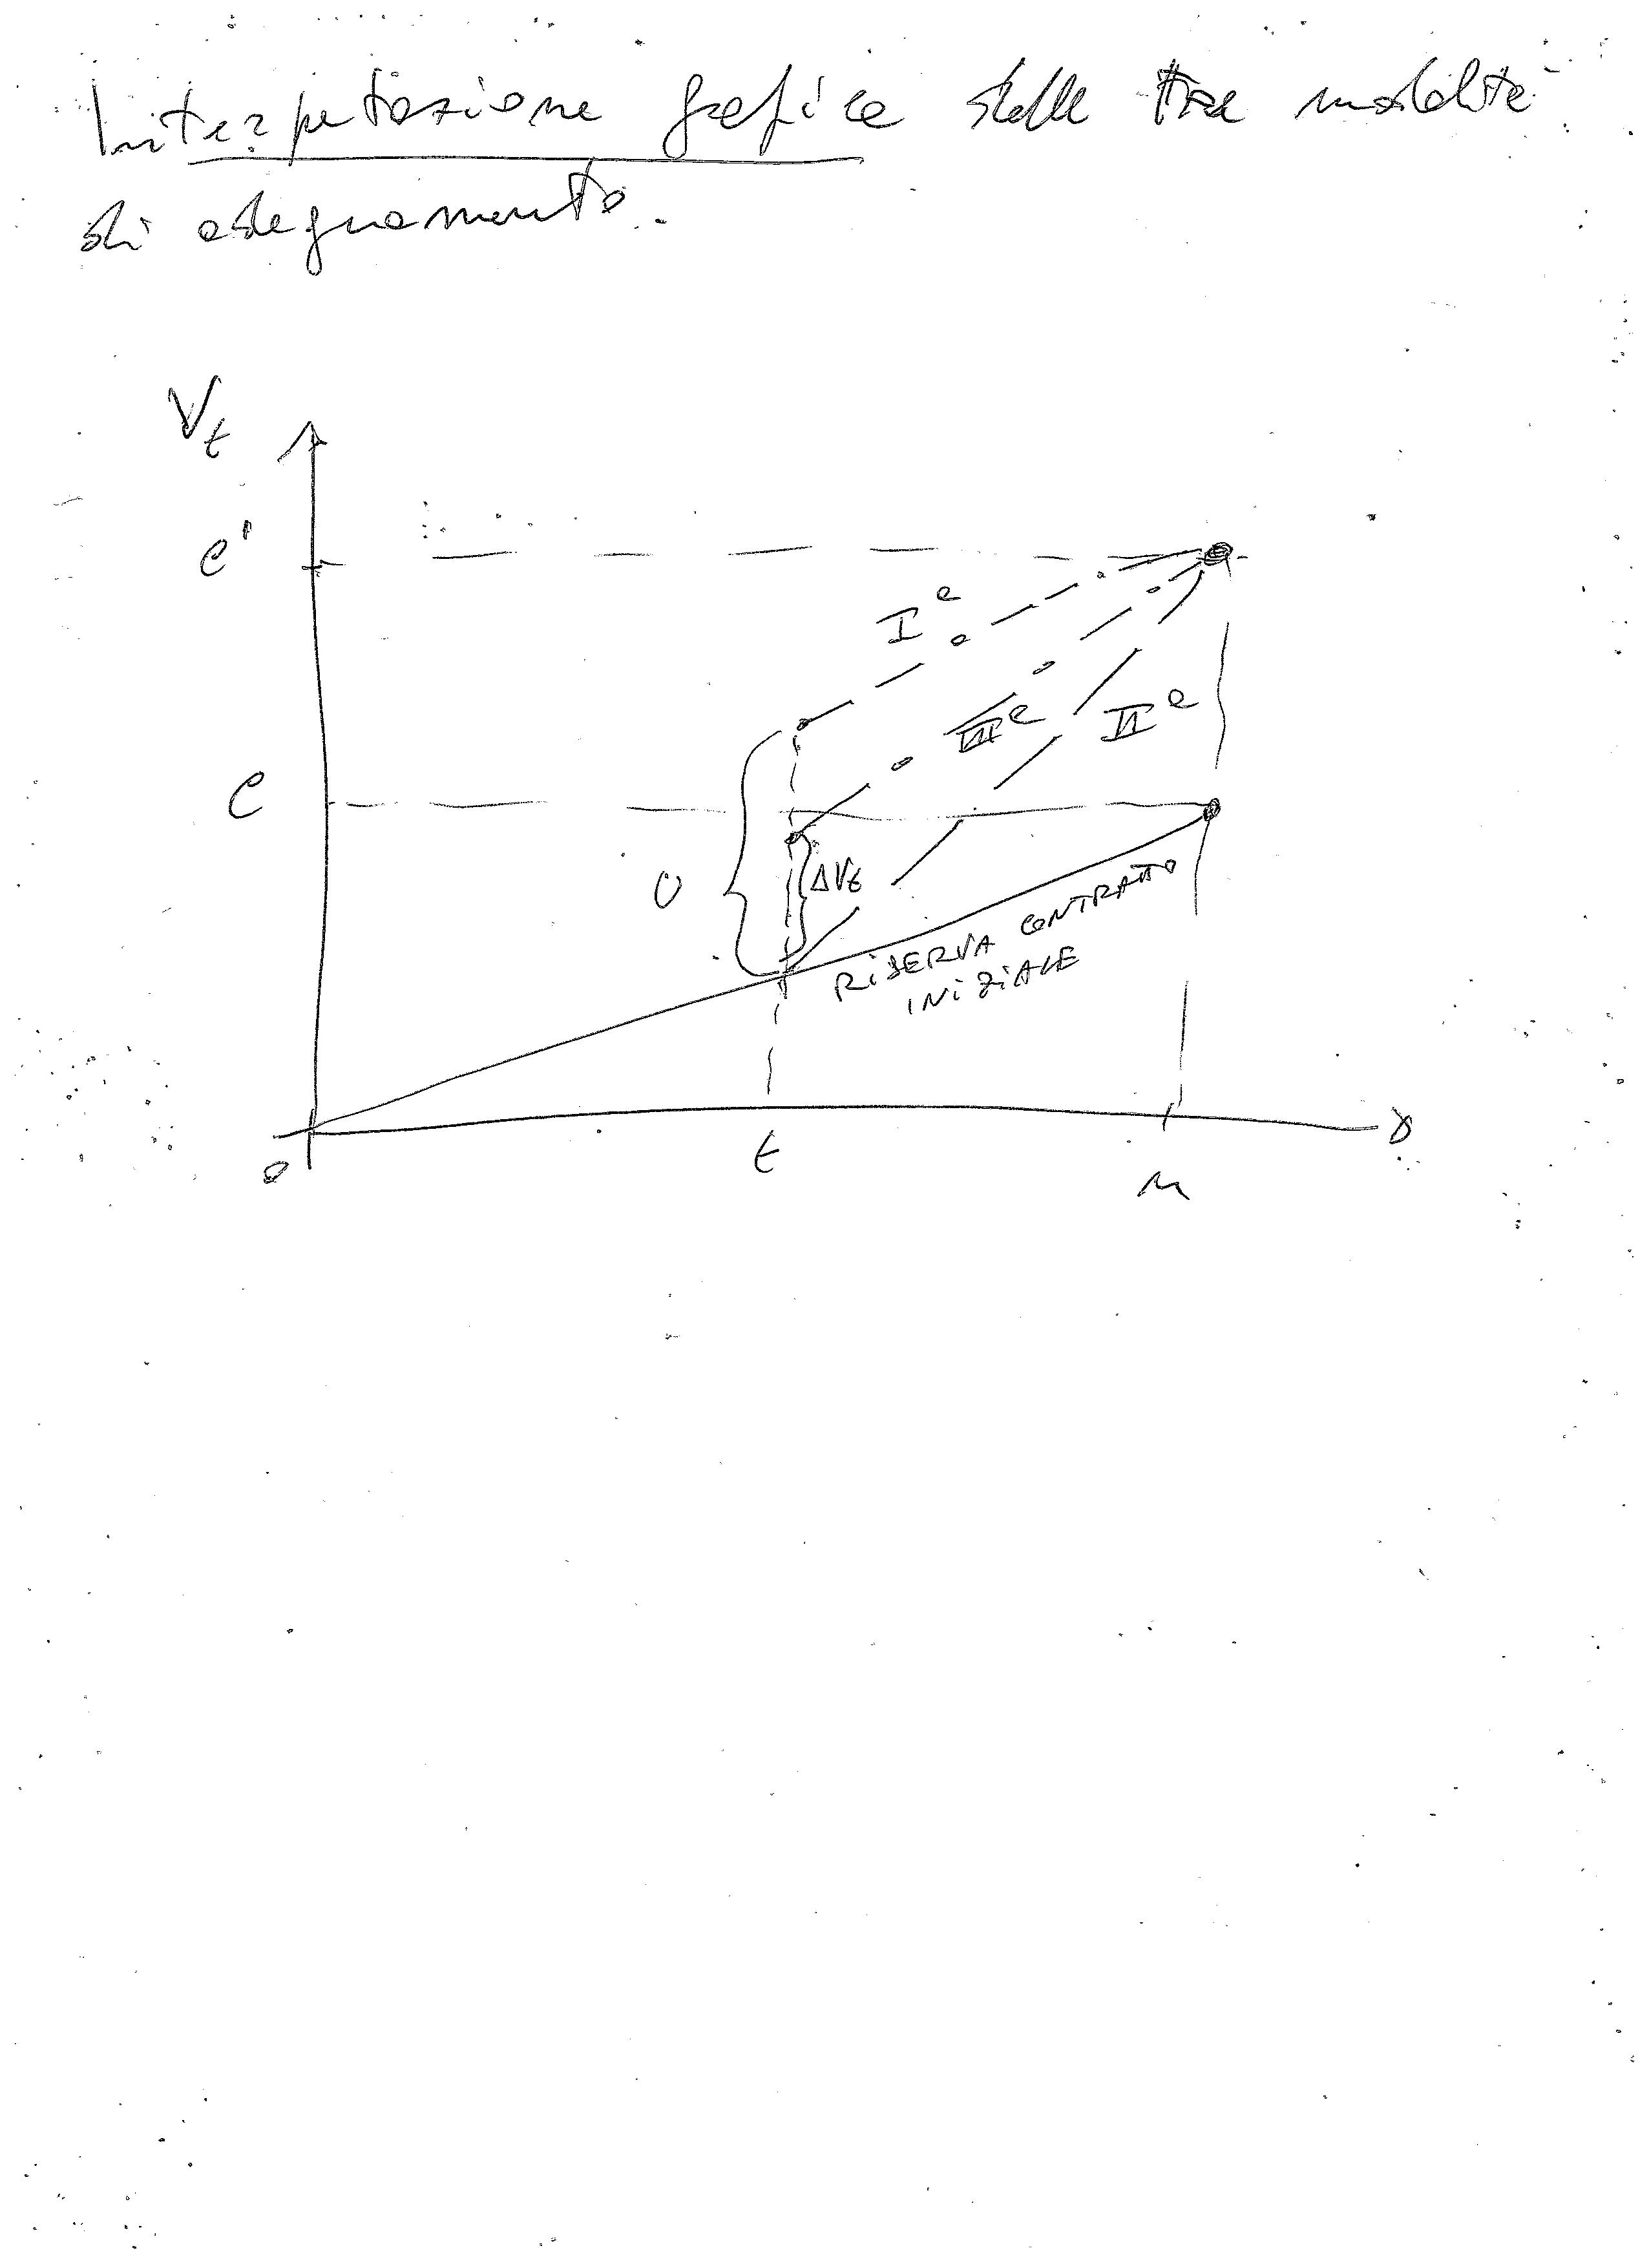 Interpretazione grafica delle tre modalità
di adeguamento.
V_t
C'
I^a
III^a
II^a
C
U
ΔV_t
RISERVA CONTRATTO
INIZIALE
0
t
n